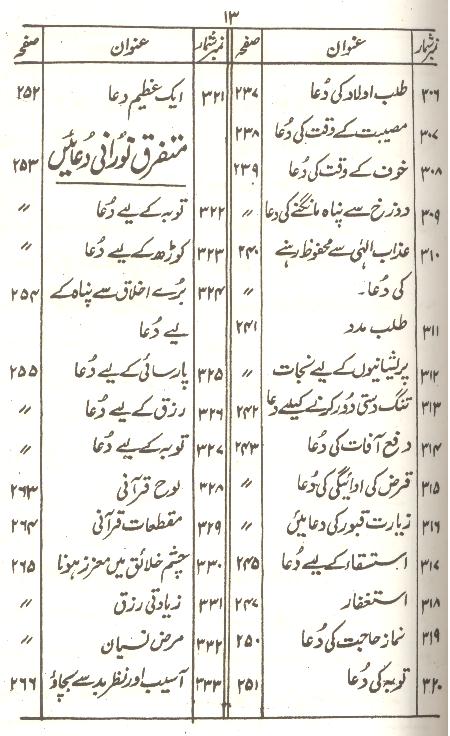 ۱۳
نمبرشمار عنوان صفحہ
۳۰۶ طلب اولاد کی دُعا ۲۳۷
۳۰۷ مصیبت کے وقت کی دُعا ۲۳۸
۳۰۸ خوف کے وقت کی دُعا ۲۳۹
۳۰۹ دوزخ سے پناہ مانگنے کی دعا 〃
۳۱۰ عذاب الٰہی سے محفوظ رہنے ۲۴۰
کی دُعا۔ 〃
۳۱۱ طلب مدد ۲۴۱
۳۱۲ پریشانیوں کے لیے نجات 〃
۳۱۳ تنگ دستی دُور کرنے کیلیے دعا ۲۴۲
۳۱۴ دفع آفات کی دُعا ۲۴۳
۳۱۵ قرض کی ادائیگی کی دُعا 〃
۳۱۶ زیارت قبور کی دعائیں 〃
۳۱۷ استسقاء کے لیے دُعا ۲۴۵
۳۱۸ استغفار ۲۴۷
۳۱۹ نماز حاجت کی دُعا ۲۵۰
۳۲۰ توبہ کی دُعا ۲۵۱
نمبرشمار عنوان صفحہ
۳۲۱ ایک عظیم دعا ۲۵۲
متفرق نُورانی دُعائیں ۲۵۳
۳۲۲ توبہ کے لیے دُعا 〃
۳۲۳ کوڑھ کے لیے دُعا 〃
۳۲۴ بُرے اخلاق سے پناہ کے ۲۵۴
لیے دُعا
۳۲۵ پارسائی کے لیے دُعا ۲۵۵
۳۲۶ رزق کے لیے دُعا 〃
۳۲۷ توبہ کے لیے دُعا 〃
۳۲۸ لوح قرآنی ۲۶۳
۳۲۹ مقطعات قرآنی ۲۶۴
۳۳۰ چشم خلائق میں معزز ہونا ۲۶۵
۳۳۱ زیادتی رزق 〃
۳۳۲ مرض نسیان 〃
۳۳۳ آسیب اور نظر بد سے بچاؤ ۲۶۶